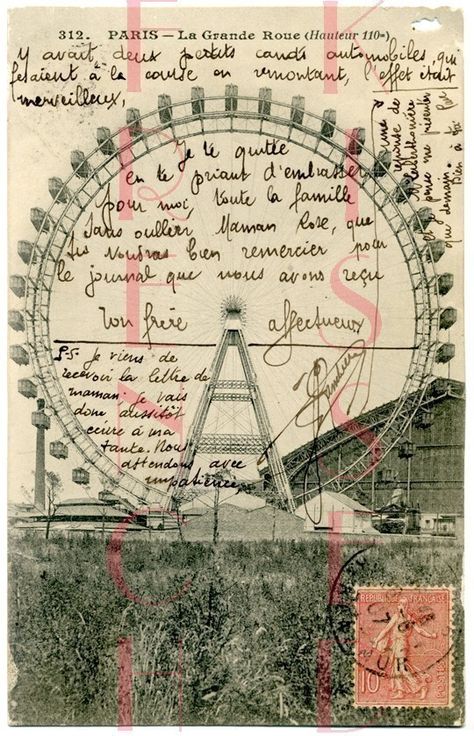 312. PARIS — La Grande Roue (Hauteur 110m)
Y avait deux petits cands automobiles, qui
fesaient à la course en remontant, l'effet était
merveilleux,
Je te quitte
en te priant d'embrasser
pour moi, toute la famille
sans oublier Maman Rose, que
tu voudras bien remercier pour
le journal que nous avons reçu
Ton frère affectueux
P.S. Je viens de
recevoir la lettre de
maman. Je vais
donc aussitôt
écrire à ma
tante. Nous
attendons avec
impatience,
une
réponse de
et je pense me
que demain.
Bien à toi
FRENCH
KISSED
REPUBLIQUE FRANÇAISE
10
POSTES